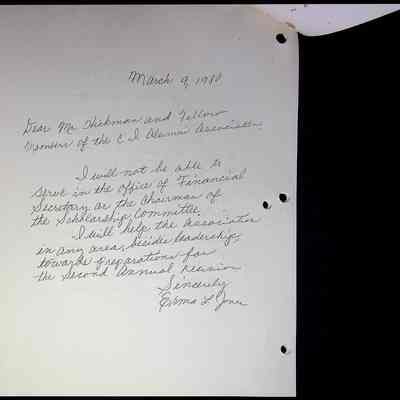 March 9, 1980
Dear Mr. Hickman and Fellow
members of the C I Alumni Association,
I will not be able to
serve in the office of Financial
Secretary or the Chairman of
the Scholarship Committee.
I will help the Association
in any area, besides leadership,
towards preparations for
the Second Annual reunion
Sincerely
L. Jones